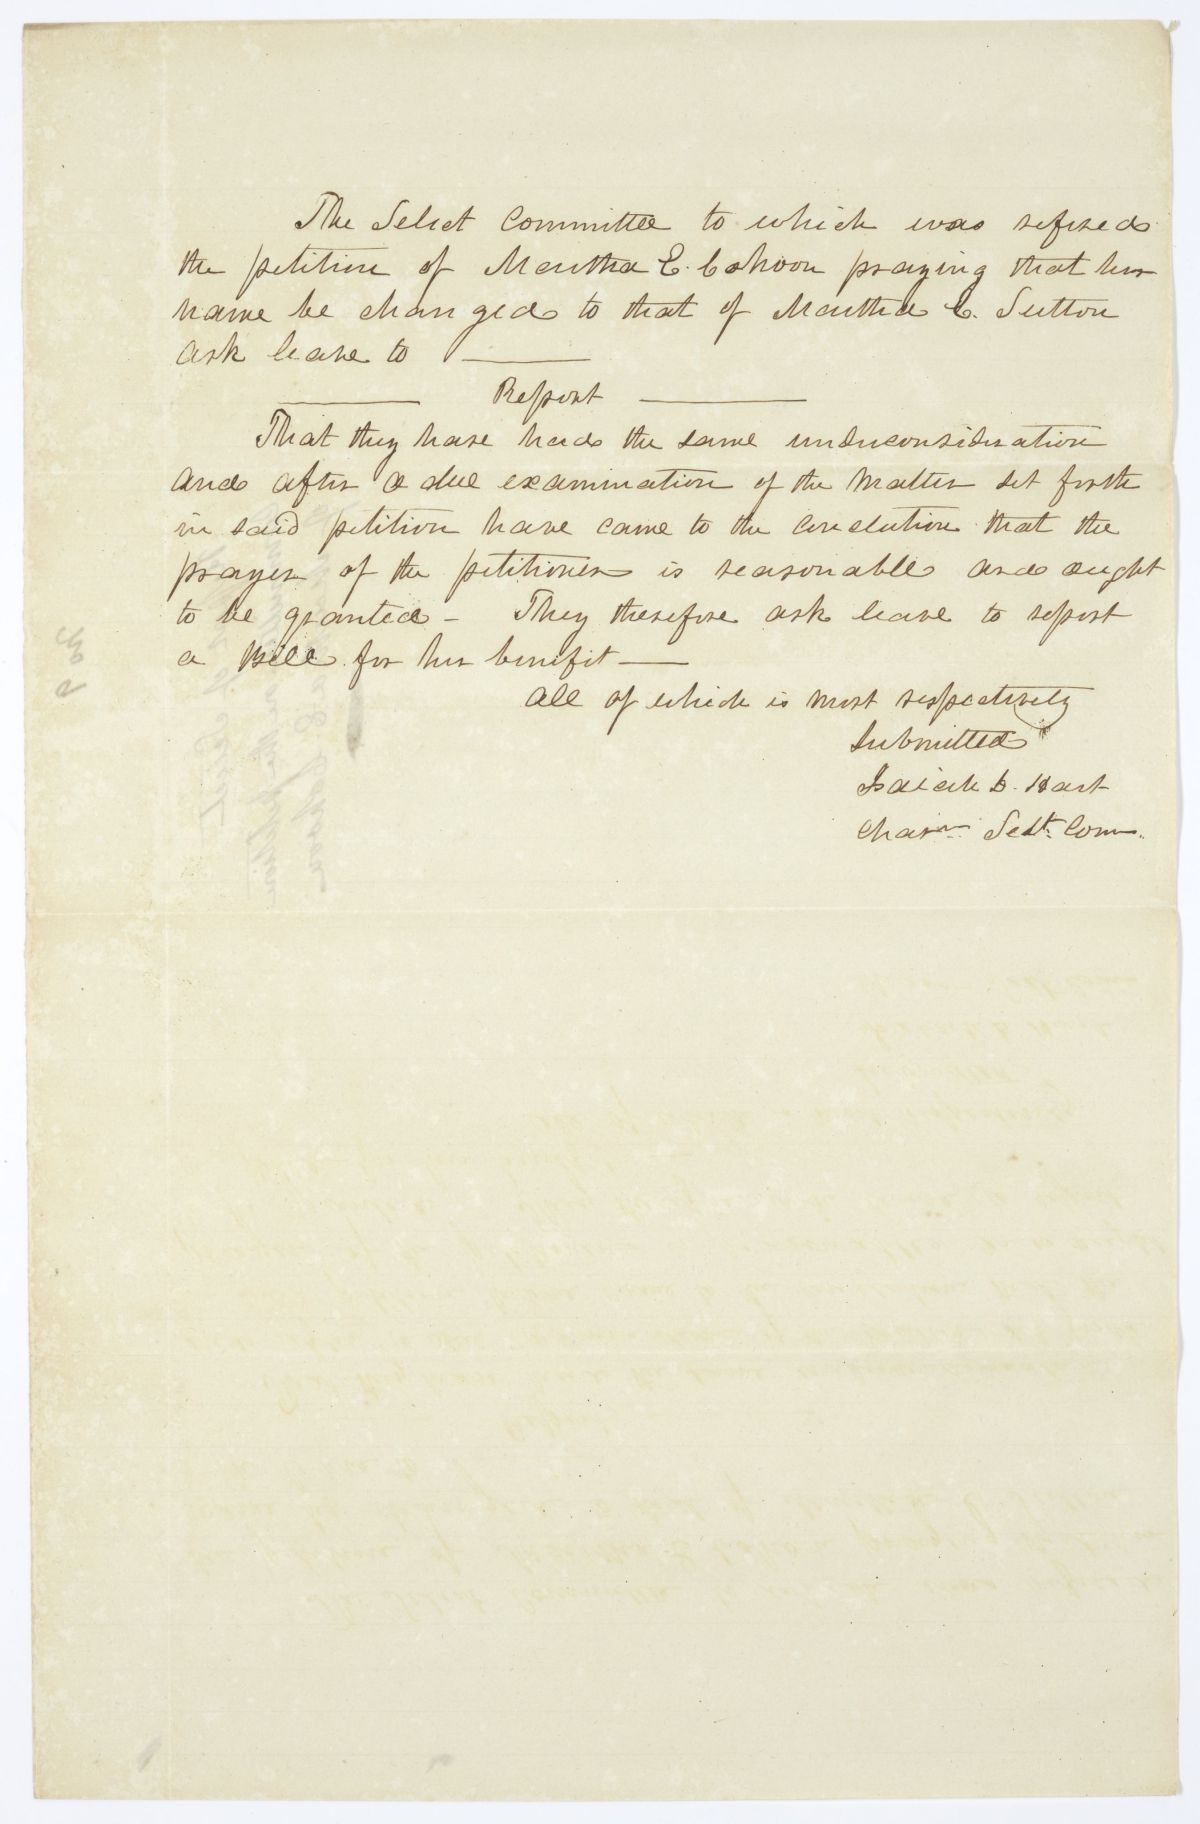 The Select Committee to which was refered
the petition of Martha E. Cohoon praying that her
name be changed to that of Martha E. Sutton
ask leave to ———
——— Report ———
That they have had the same underconsideration
and after a due examination of the Matter set forth
in said petition have came to the conclution that the
prayer of the petitioner is reasonable and ought
to be granted - They therefore ask leave to report
a Bill for her benefit ——
All of which is most respectively
Submitted
Isaiah D. Hart
Charn Selt. Com.